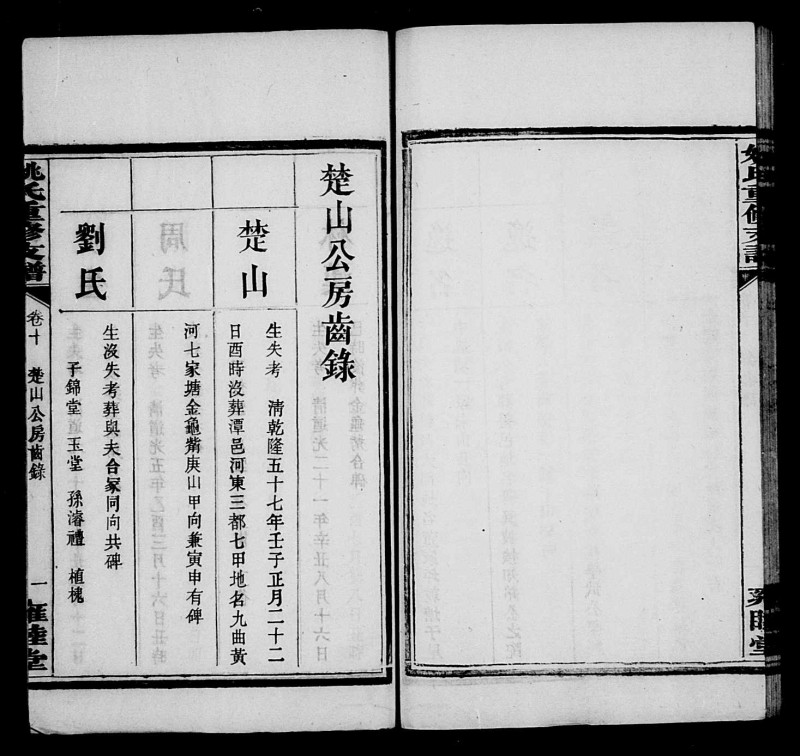 楚山公房齒錄
楚山
生失考　淸乾隆五十七年壬子正月二十二
日酉時沒葬潭邑河東三都七甲地名九曲黃
河七家塘金龜觜庚山甲向兼寅申有碑
劉氏
生沒失考葬與夫合冢同向共碑
子錦堂　玉堂　孫濬禮　植槐
姚氏重修支譜
卷十　楚山公房齒錄
一
雍睦堂